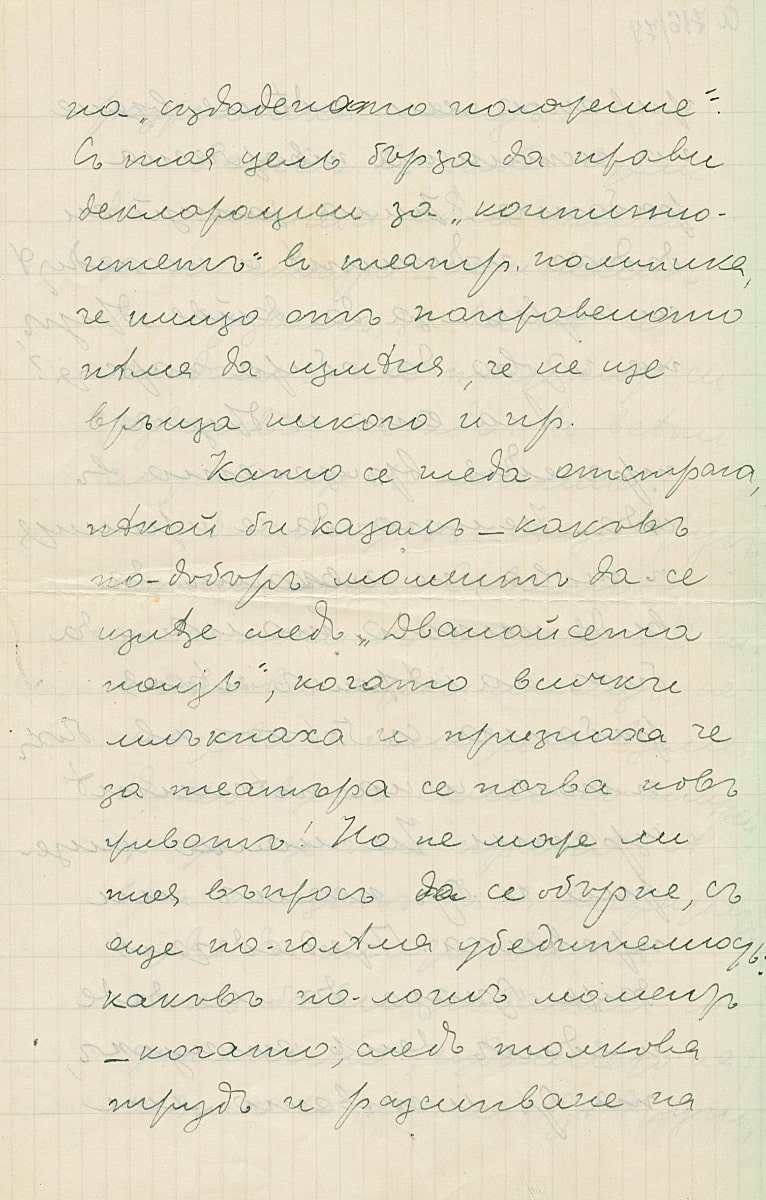 на „създаденото положение“.
Съ тая цель бърза да прави
декларации за „континю-
итетъ“ въ театр. политика,
че нищо отъ направеното
нѣма да измѣня, че не ще
връща никого и пр.
Като се гледа отстрана,
нѣкой би казалъ – какъвъ
по-добъръ моментъ да се
излѣзе следъ „Дванайсета
нощь“, когато всички
млъкнаха и признаха че
за театъра се почва новъ
животъ! Но не може ли
тоя въпросъ да се обърне, съ
още по-голѣма убедителность:
какъвъ по-лошъ моментъ
– когато, следъ толкова
трудъ и разсипване на